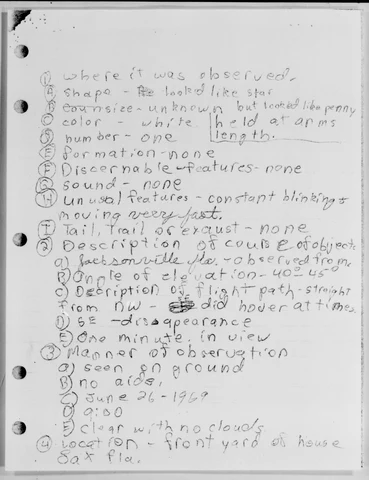 ① where it was observed.
Ⓐ shape - looked like star
Ⓑ size - unknown but looked like penny
Ⓒ color - white held at arms
Ⓓ number - one length.
Ⓔ formation - none
Ⓕ Discernable - features - none
Ⓖ sound - none
Ⓗ unusal features - constant blinking &
moving very fast.
Ⓘ Tail, Trail or exaust - none
② Description of course of object
a) Jacksonville fla. - observed from.
B) Angle of elevation - 40° 45°
C) Decription of flight path - straight
from NW - did hover at times
D) SE - disapearance
E) One minute. in view
③ Manner of observation
a) seen on ground
B) no aids.
C) June 26 - 1969
D) 9:00
E) clear with no clouds
④ Location - front yard of house
Jax fla.